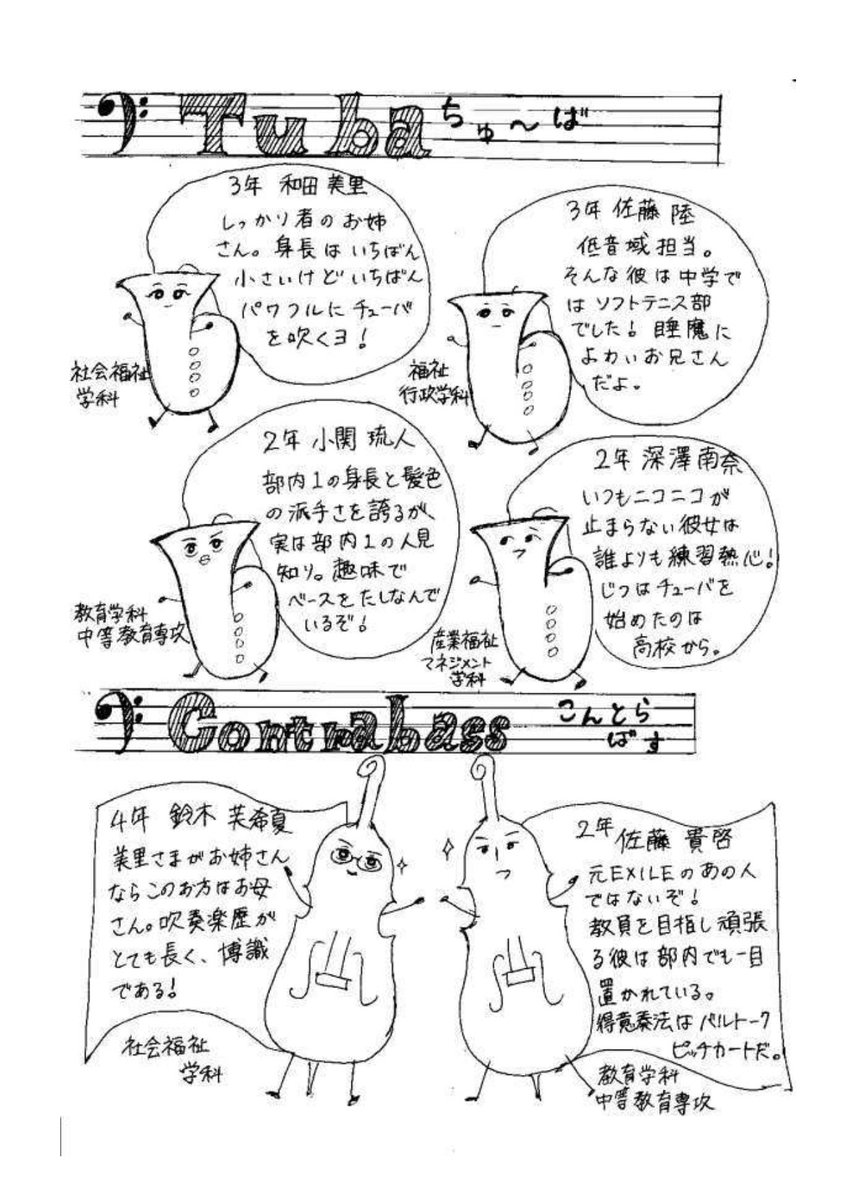 Tuba ちゅ〜ば
3年 和田 美里
しっかり者のお姉
さん。身長はいちばん
小さいけどいちばん
パワフルにチューバ
を吹くヨ!
社会福祉
学科
3年 佐藤 陸
低音域担当。
そんな彼は中学で
はソフトテニス部
でした! 睡魔に
よわいお兄さん
だよ。
福祉
行政学科
2年 小関 琉人
部内1の身長と髪色
の派手さを誇るが、
実は部内1の人見
知り。趣味で
ベースをたしなんで
いるぞ!
教育学科
中等教育専攻
2年 深澤南奈
いつもニコニコが
止まらない彼女は
誰よりも練習熱心!
じつはチューバを
始めたのは
高校から。
産業福祉
マネジメント
学科
Contrabass こんとら
ばす
4年 鈴木 芙希夏
美里さまがお姉さん
ならこのお方はお母
さん。吹奏楽歴が
とても長く、博識
である!
社会福祉
学科
2年 佐藤 貴啓
元EXILEのあの人
ではないぞ!
教員を目指し頑張
る彼は部内でも一目
置かれている。
得意奏法はバルトーク
ピッチカートだ。
教育学科
中等教育専攻